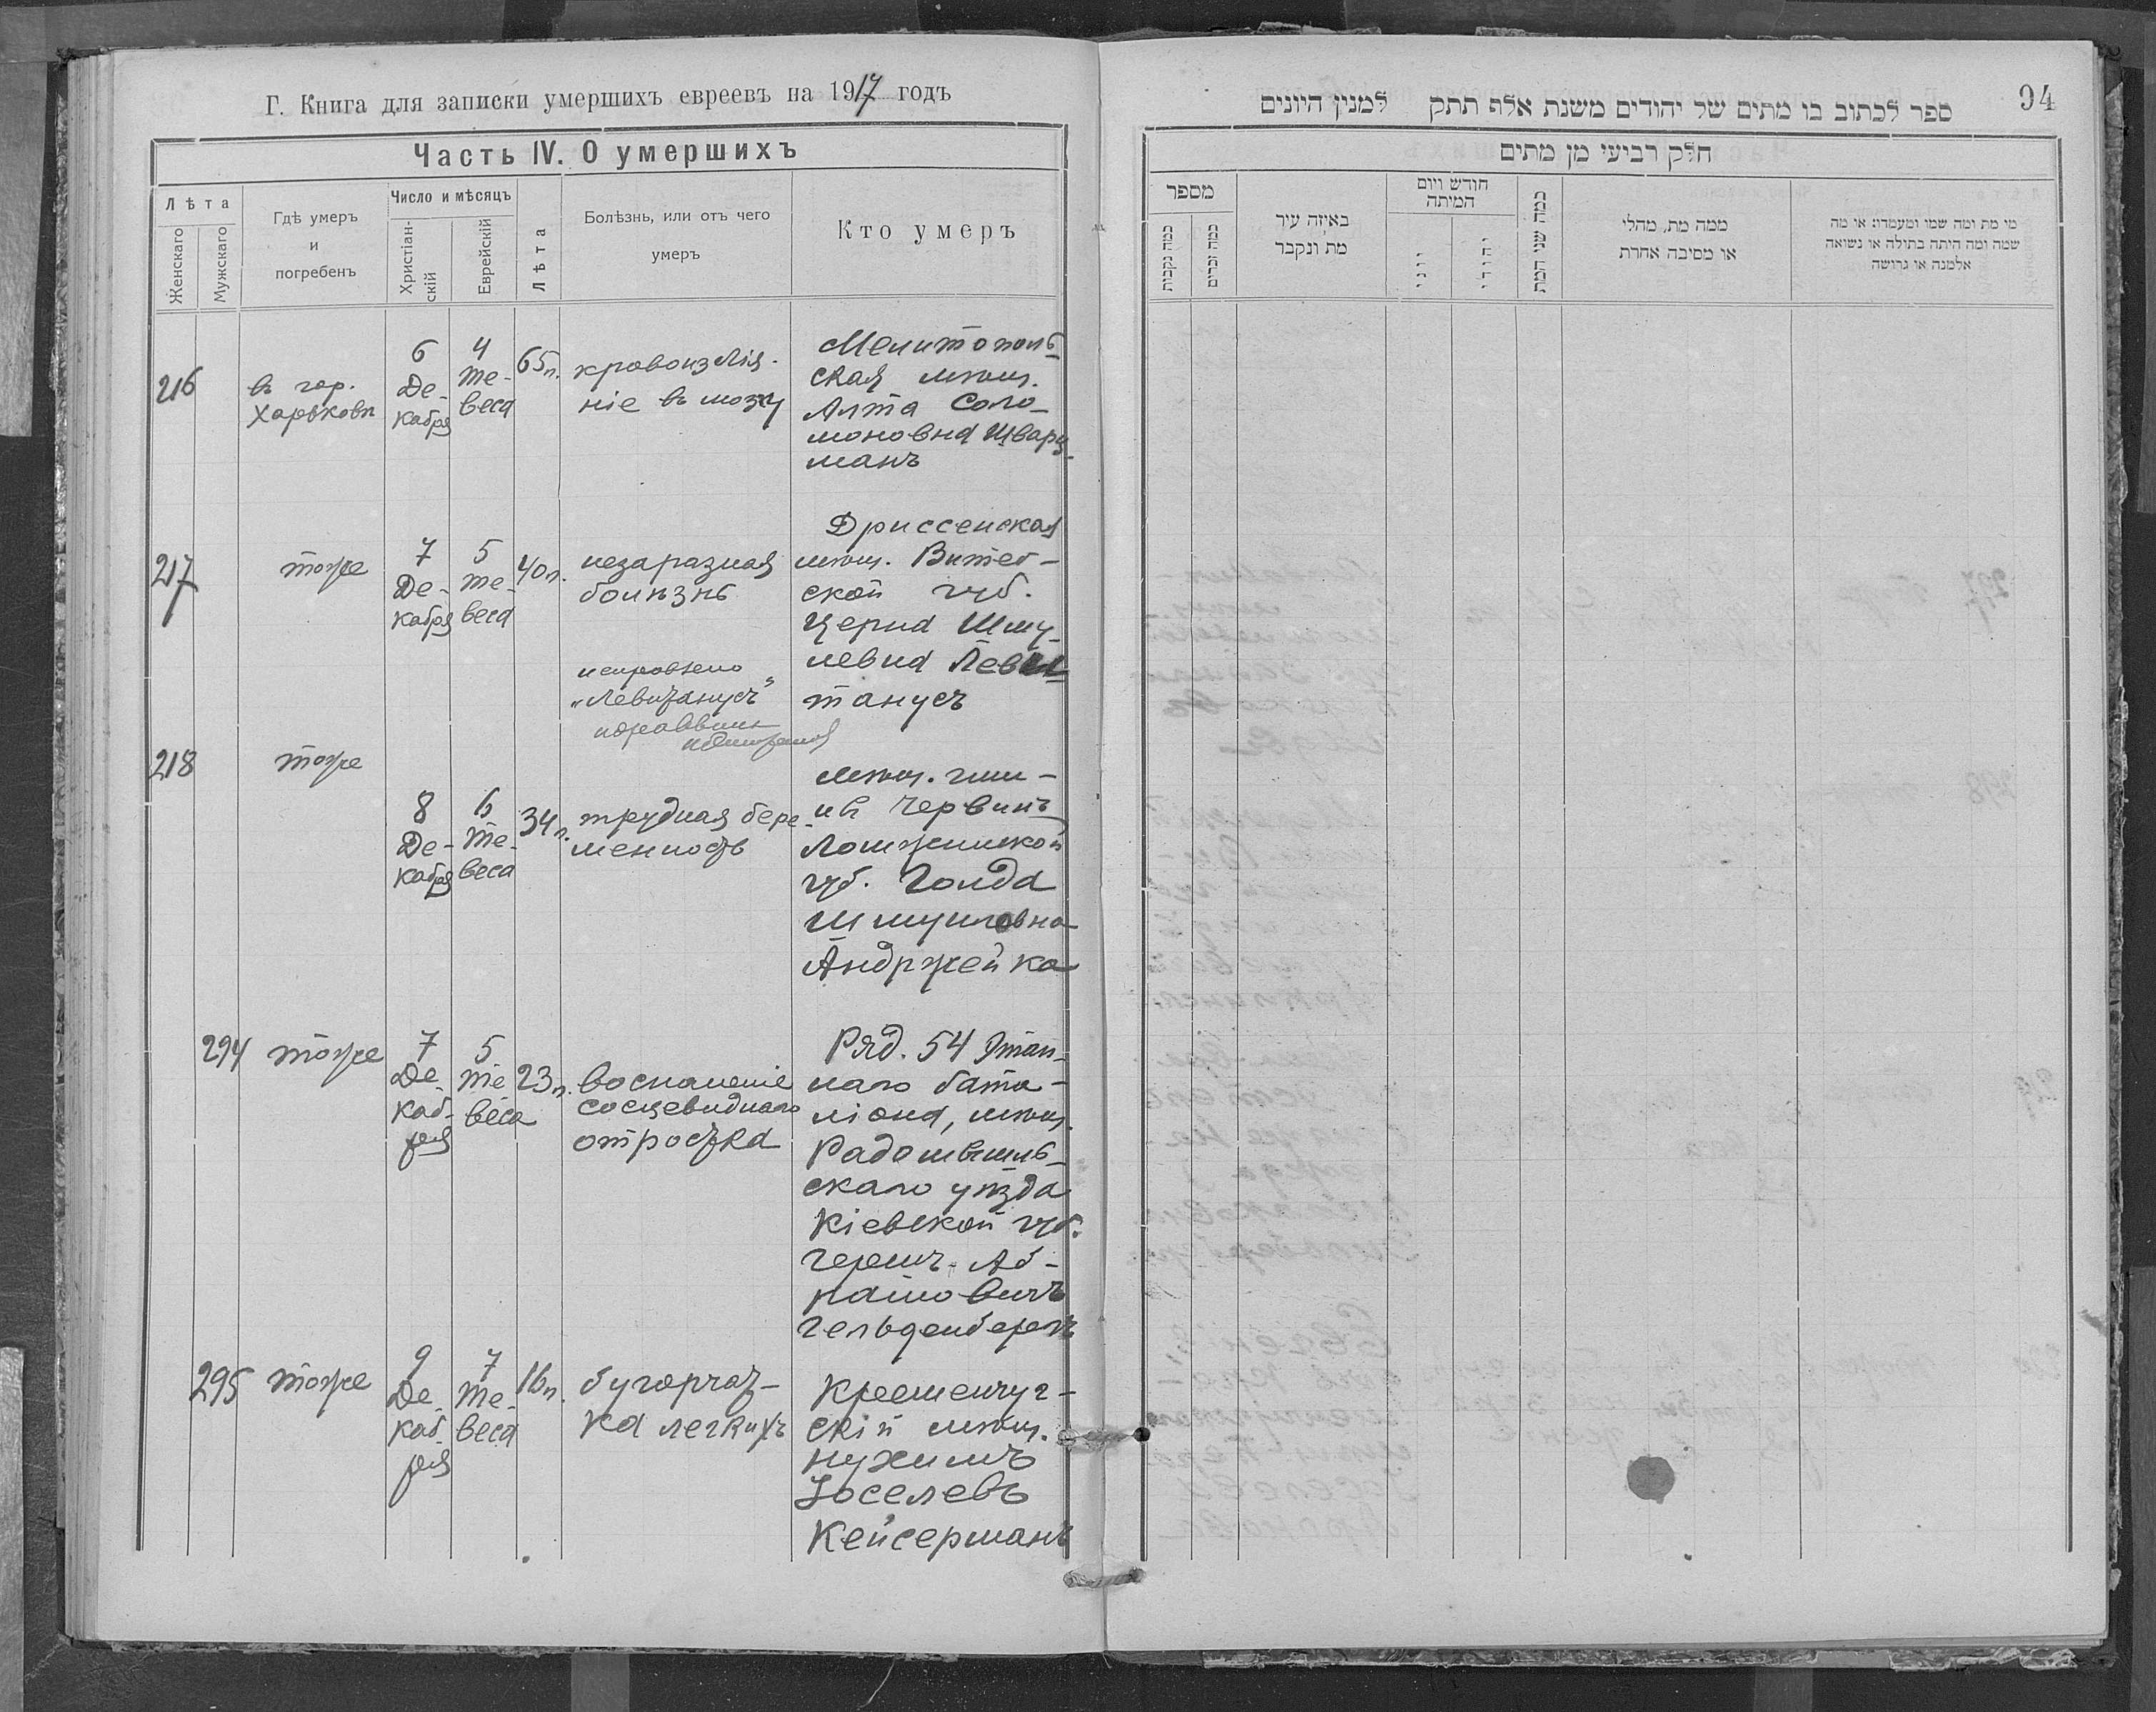 Г. Книга для записки умершихъ евреевъ на 1917 годъ
Часть IV. О умершихъ
Лѣта
Женскаго
Мужскаго
Гдѣ умеръ
и
погребенъ
Число и мѣсяцъ
Христіан-
скій
Еврейскій
Лѣта
Болѣзнь, или отъ чего
умеръ
Кто умеръ
216
въ гор.
Харьковѣ
6
Де-
кабря
4
Те-
веса
65 л.
кровоизлія-
ніе въ мозгу
Мелитополь-
ская мѣщ.
Алта Соло-
моновна Шварц-
манъ
217
тоже
7
Де-
кабря
5
Те-
веса
40 л.
незаразная
болѣзнь
исправлено
„Левитанусъ"
Дриссенская
мѣщ. Витеб-
ской губ.
Церна Шму-
левна Леви-
танусъ
218
тоже
8
Де-
кабря
6
Те-
веса
34 л.
трудная бере-
менность
мѣщ. гми-
ны Червинъ
Ломжинской
губ. Голда
Шмуиловна
Анджейка
294
тоже
7
Де-
каб-
ря
5
Те-
веса
23 л.
воспаленіе
сосцевиднаго
отростка
Ряд. 54 Этап-
наго бата-
ліона, мѣщ.
Радомысль-
скаго уѣзда
Кіевской губ.
Гершъ Аб-
рамовичъ
Гельденбергъ
295
тоже
9
Де-
каб-
ря
7
Те-
веса
16 л.
бугорчат-
ка легкихъ
Кременчуг-
скій мѣщ.
Нухимъ
Іоселевъ
Кейсерманъ
94
ספר לכתוב בו מתים של יהודים משנת אלף תתק למנין היונים
חלק רביעי מן מתים
מספר
כמה נקבות
כמה זכרים
באיזה עיר
מת ונקבר
חודש ויום
המיתה
יוני
יהודי
כמה שני המת
ממה מת, מחלי
או מסיבה אחרת
מי מת ומה שמו ומעמדו: או מה
שמה ומה היתה בתולה או נשואה
אלמנה או גרושה